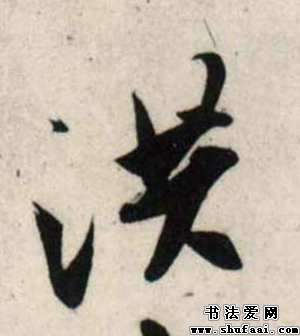 洪
书法爱网
www.shufaai.com